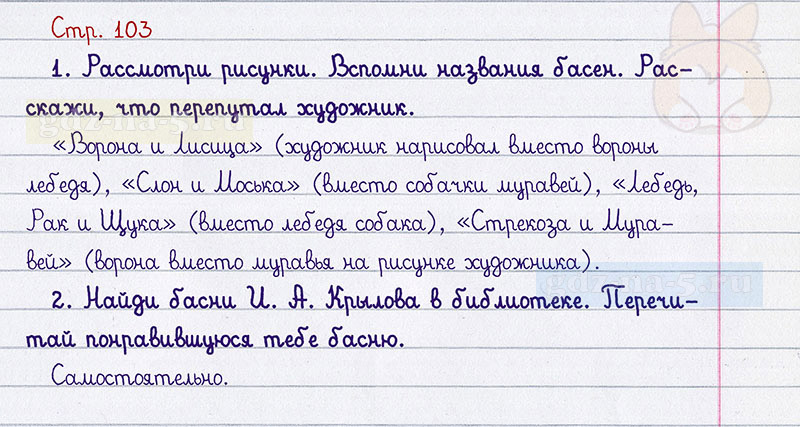 Стр. 103
1. Рассмотри рисунки. Вспомни названия басен. Рас-
скажи, что перепутал художник.
«Ворона и Лисица» (художник нарисовал вместо вороны
лебедя), «Слон и Моська» (вместо собачки муравей), «Лебедь,
Рак и Щука» (вместо лебедя собака), «Стрекоза и Мура-
вей» (ворона вместо муравья на рисунке художника).
2. Найди басни И. А. Крылова в библиотеке. Перечи-
тай понравившуюся тебе басню.
Самостоятельно.
gdz-na-5.ru
gdz-na-5.ru